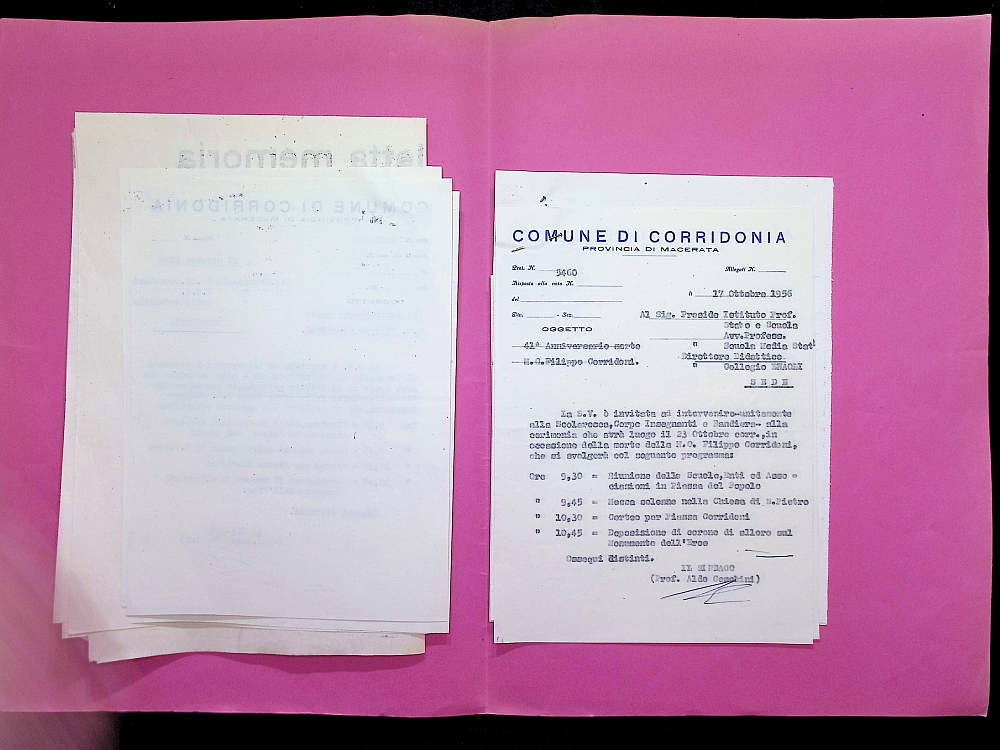 letta memoria
COMUNE DI CORRIDONIA
PROVINCIA DI MACERATA
COMUNE DI CORRIDONIA
PROVINCIA DI MACERATA
Prot. N. 5460
Allegati N.
Risposta alla nota N.
del
li 17 Ottobre 1956
Div. Sez.
OGGETTO
41º Anniversario morte
M.O. Filippo Corridoni.
Al Sig. Preside Istituto Prof.
Stato e Scuola
Avv.Profess.
" Scuola Media Stat
Direttore Didattico
" Collegio ENAOLI
SEDE
La S.V. è invitata ad intervenire-unitamente
alla Scolaresca,Corpo Insegnanti e Bandiera- alla
cerimonia che avrà luogo il 23 Ottobre corr.,in
occasione della morte della M.O. Filippo Corridoni,
che si svolgerà col seguente programma:
Ore 9,30 = Riunione delle Scuole,Enti ed Asso =
ciazioni in Piazza del Popolo
" 9,45 = Messa solenne nella Chiesa di S.Pietro
" 10,30 = Corteo per Piazza Corridoni
" 10,45 = Deposizione di corone di alloro sul
Monumento dell'Eroe
Ossequi distinti.
IL SINDACO
(Prof. Aldo Ceschini)